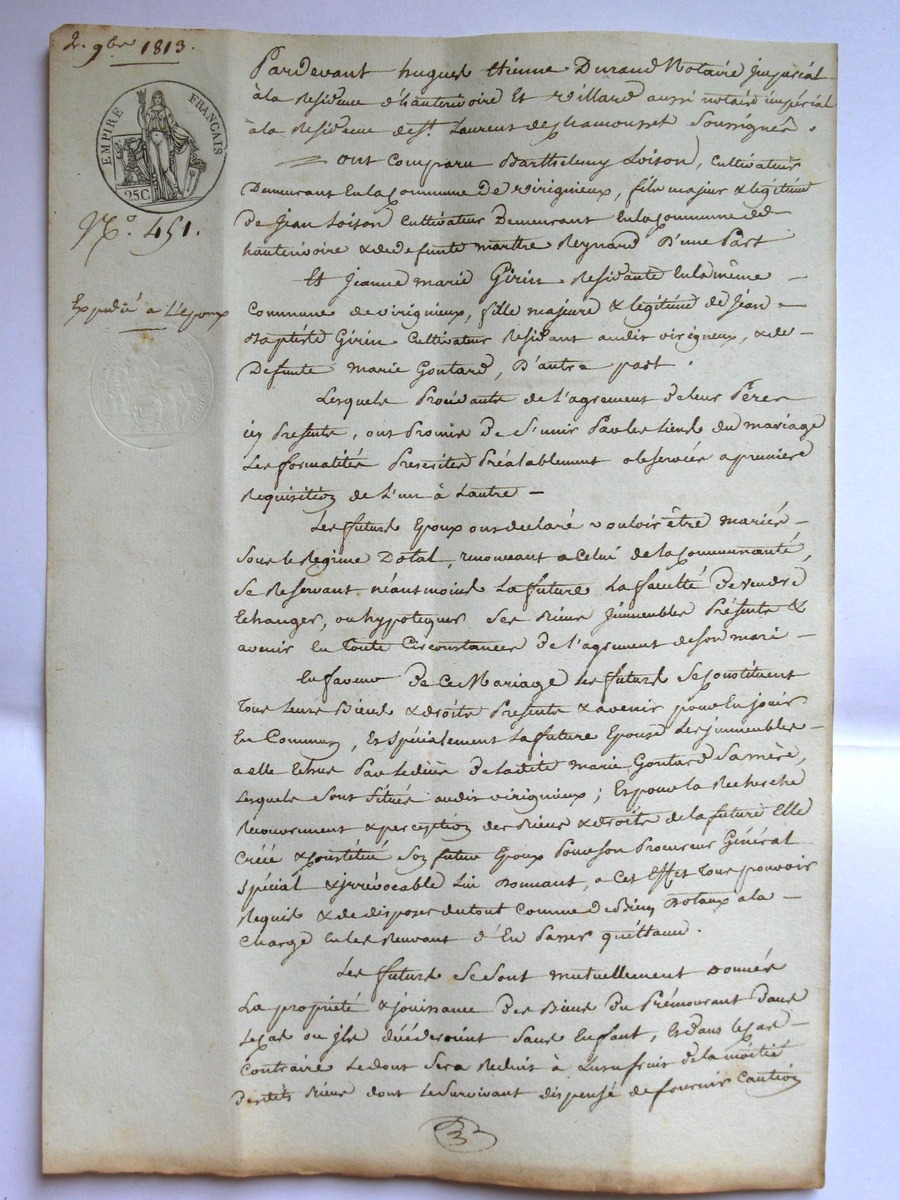 2. 9bre 1813.
EMPIRE FRANÇAIS
25C
N°. 451.
Expédié a L'epoux
Pardevant hugues Etienne Durand Notaire jmpérial
à la Residence d'hauterivoire Et Villard aussi notaire impérial
à la Residence de St. Laurent de chamousset Soussignés.
ont Comparu Barthelemy Loison, Cultivateur
Demeurant En la Commune De virigneux, fils majeur & légitime
De Jean Loison Cultivateur Demeurant En la Commune de
hauterivoire & de defunte marthe Reynard D'une Part
Et Jeanne marie Girin Residante En la même
Commune de virigneux, fille majeure & legitime de Jean
Baptiste Girin Cultivateur Residant audit virigneux, & de
Defunte marie Goutard, D'autre part.
Lesquels Procédants de l'agrement de leurs Péres
icy Presents, ont Promis De S'unir Par les liens du mariage
Les formalités Prescrites Préalablement observées a premiere
Requisition de L'un à Lautre
Les futurs Epoux ont declaré vouloir être mariés
Sous le Régime Dotal, renonceant a Celui de la Communauté,
Se Reservant néantmoins La future La faculté De vendre
Echanger, ou hypotequer Ses Biens jmmeubles Présents &
avenir En Toute Circonstances De l'agrement de Son mari
En faveur De Ce Mariage Les futurs Se Constituent
Tous leurs Biens & droits Presents & avenir pour En jouir
En Commun, Et Spécialement La future Epouse Les jmmeubles
a elle Echus Par Le décès De ladite marie Goutard Sa mère,
Lesquels Sont Situés audit virigneux; Et pour la Recherche
Recouvrement & perception des Biens & droits de la future Elle
Créée & Constitue Son futur Epoux Pour Son Procureur Général
Spécial & jrrévocable Lui Donnant, a Cet Effet Tous pouvoir
Requis & de disposer du tout Comme De Biens Dotaux a la
Charge En les Recevant d'En Passer quittance.
Les futurs Se Sont mutuellement Donnés
La propriété & jouissance Des Biens Du Prémourant Dans
Le Cas ou jls décéderoint Sans Enfant, Et dans le Cas
Contraire Le don Sera Reduit à L'usufruit de la moitié
Desdits Biens dont Le Survivant dispensé de fournir Caution